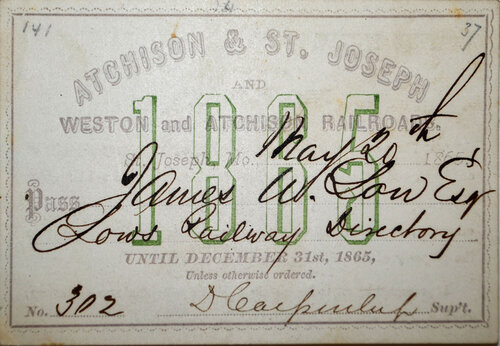 141 37
ATCHISON & ST. JOSEPH
AND
1865
WESTON and ATCHISON RAILROADS.
St. Joseph, Mo. May 20th 1865
Pass James W. Low Esq
Lows Railway Directory
UNTIL DECEMBER 31st, 1865,
Unless otherwise ordered.
No. 302 Sup't.